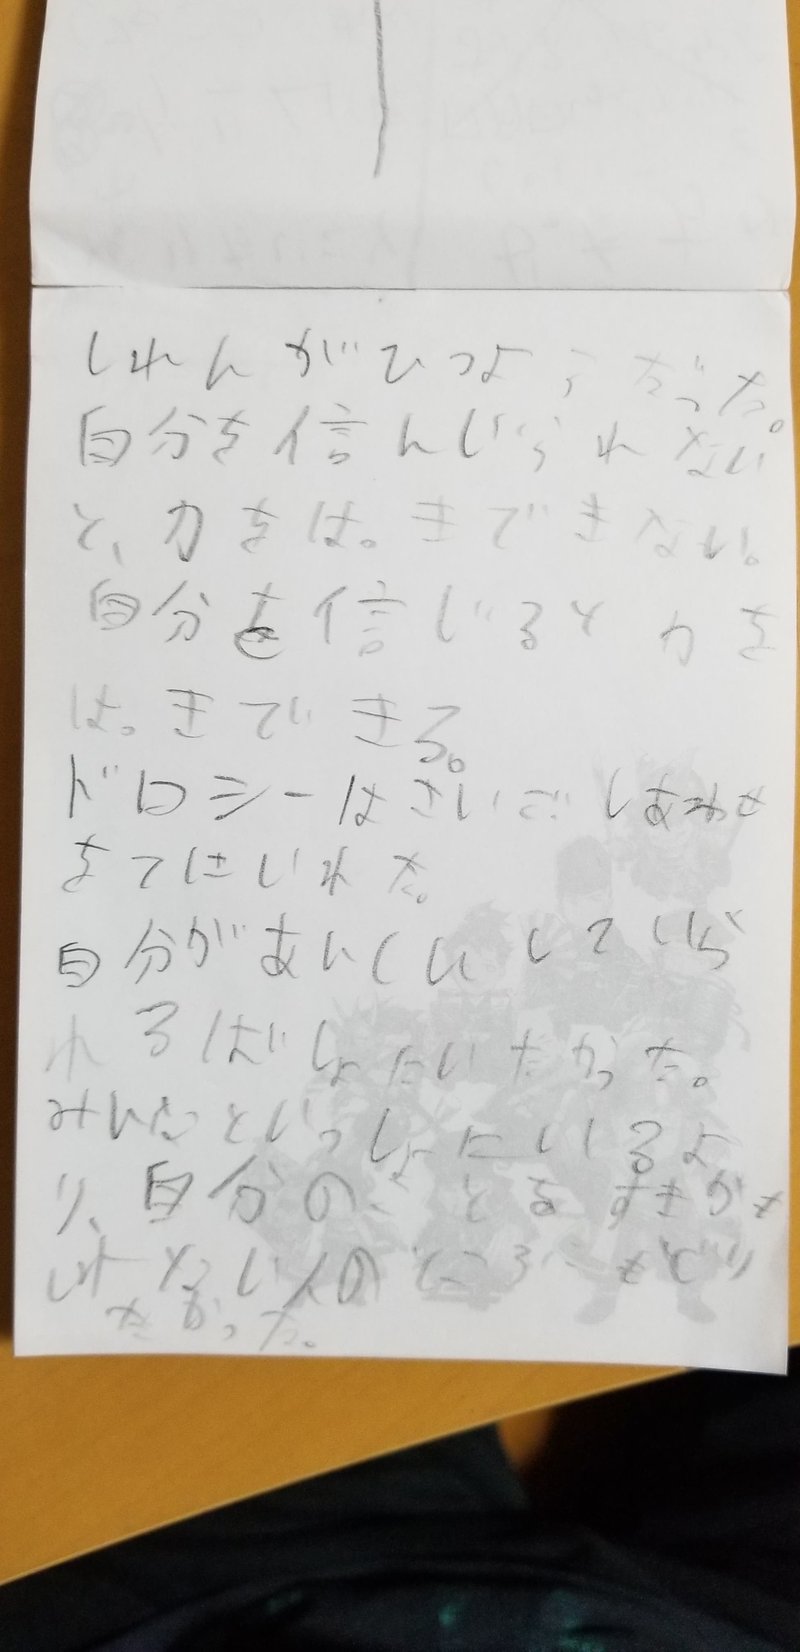 しれんがひつようだった。
自分を信んじられない
と、力をは。きできない。
自分を信じると力を
は。きできる。
ドロシーはさいごしあわせ
をてにいれた。
自分があんしんしていら
れるばしょにいたかった。
みんなといっしょにいるよ
り、自分のことをすきかも
しれない人のところにもどり
たかった。